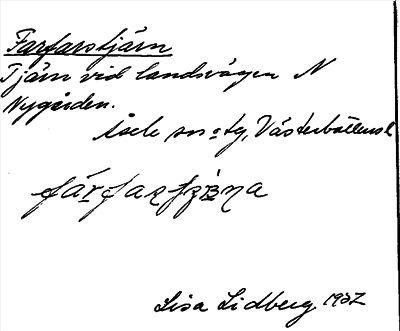 Farfarstjärn
Tjärn vid landsvägen N
Nygården.
Åsele sn o tg, Västerbottens l
Lisa Lidberg 1937